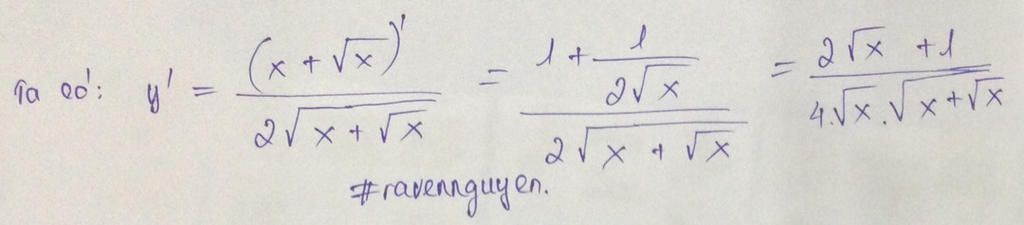 Ta có: y' = (x + √x)' / 2√(x + √x) = (1 + 1/(2√x)) / 2√(x + √x) = (2√x + 1) / (4.√x.√(x + √x))
#ravennguyen.